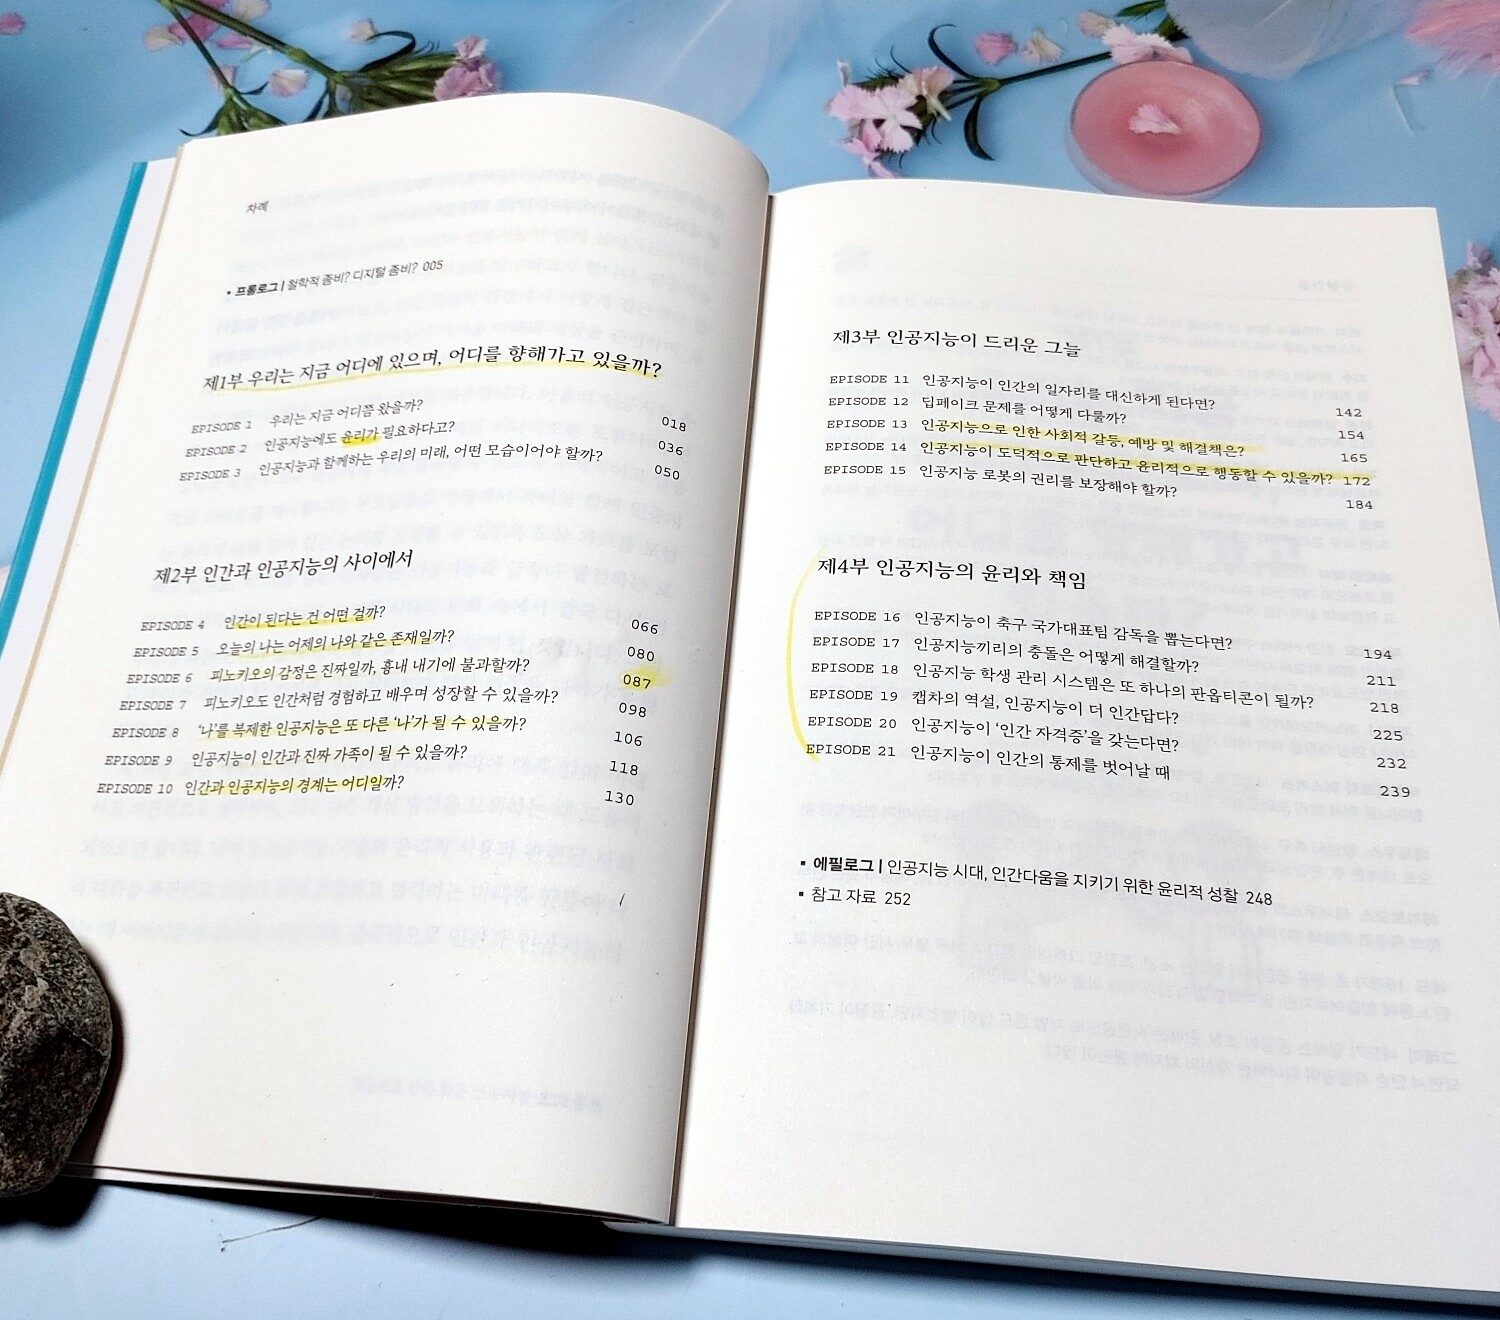 차례
▪ 프롤로그 | 철학적 좀비? 디지털 좀비? 005
제1부 우리는 지금 어디에 있으며, 어디를 향해가고 있을까?
EPISODE 1 우리는 지금 어디쯤 왔을까? 018
EPISODE 2 인공지능에도 윤리가 필요하다고? 036
EPISODE 3 인공지능과 함께하는 우리의 미래, 어떤 모습이어야 할까? 050
제2부 인간과 인공지능의 사이에서
EPISODE 4 인간이 된다는 건 어떤 걸까? 066
EPISODE 5 오늘의 나는 어제의 나와 같은 존재일까? 080
EPISODE 6 피노키오의 감정은 진짜일까, 흉내 내기에 불과할까? 087
EPISODE 7 피노키오도 인간처럼 경험하고 배우며 성장할 수 있을까? 098
EPISODE 8 ‘나’를 복제한 인공지능은 또 다른 ‘나’가 될 수 있을까? 106
EPISODE 9 인공지능이 인간과 진짜 가족이 될 수 있을까? 118
EPISODE 10 인간과 인공지능의 경계는 어디일까? 130
제3부 인공지능이 드리운 그늘
EPISODE 11 인공지능이 인간의 일자리를 대신하게 된다면? 142
EPISODE 12 딥페이크 문제를 어떻게 다룰까? 154
EPISODE 13 인공지능으로 인한 사회적 갈등, 예방 및 해결책은? 165
EPISODE 14 인공지능이 도덕적으로 판단하고 윤리적으로 행동할 수 있을까? 172
EPISODE 15 인공지능 로봇의 권리를 보장해야 할까? 184
제4부 인공지능의 윤리와 책임
EPISODE 16 인공지능이 축구 국가대표팀 감독을 뽑는다면? 194
EPISODE 17 인공지능끼리의 충돌은 어떻게 해결할까? 211
EPISODE 18 인공지능 학생 관리 시스템은 또 하나의 판옵티콘이 될까? 218
EPISODE 19 캡차의 역설, 인공지능이 더 인간답다? 225
EPISODE 20 인공지능이 ‘인간 자격증’을 갖는다면? 232
EPISODE 21 인공지능이 인간의 통제를 벗어날 때 239
▪ 에필로그 | 인공지능 시대, 인간다움을 지키기 위한 윤리적 성찰 248
▪ 참고 자료 252